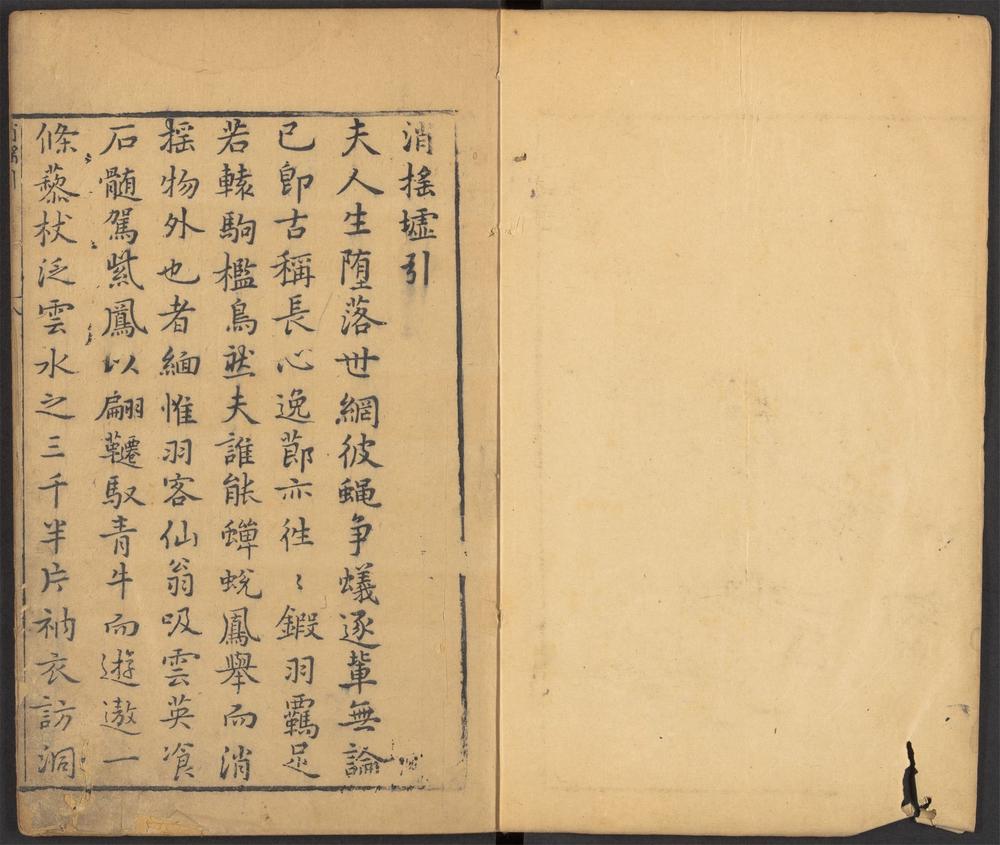 消搖墟引
夫人生堕落世網彼蝇争蟻逐軰無論
已即古稱長心逸莭亦徃〻鍜羽覊足
若轅駒檻鳥㷊夫誰能蟬蛻鳳舉而消
揺物外也者緬惟羽客仙翁吸雲英飡
石髄駕紫鳳以翩韆馭青牛而遊遨一
條藜杖泛雲水之三千半片衲衣訪洞